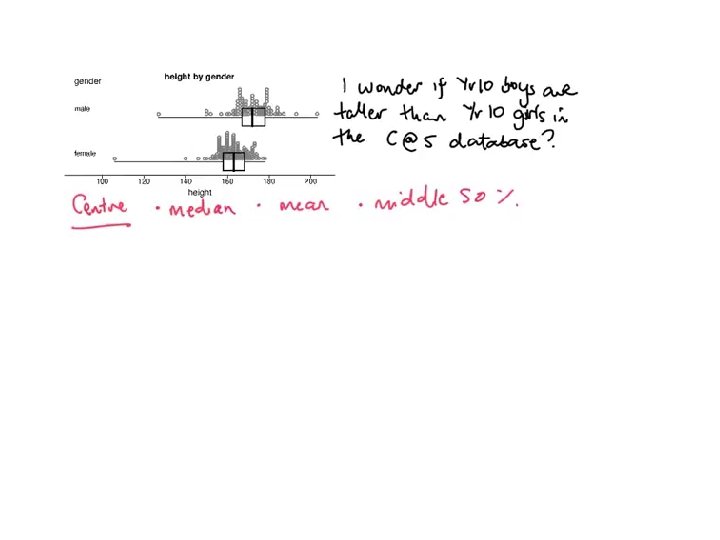 height by gender
gender
male
female
100 120 140 160 180 200
height
I wonder if Yr10 boys are
taller than Yr10 girls in
the C@S database?
Centre • median • mean • middle 50%.